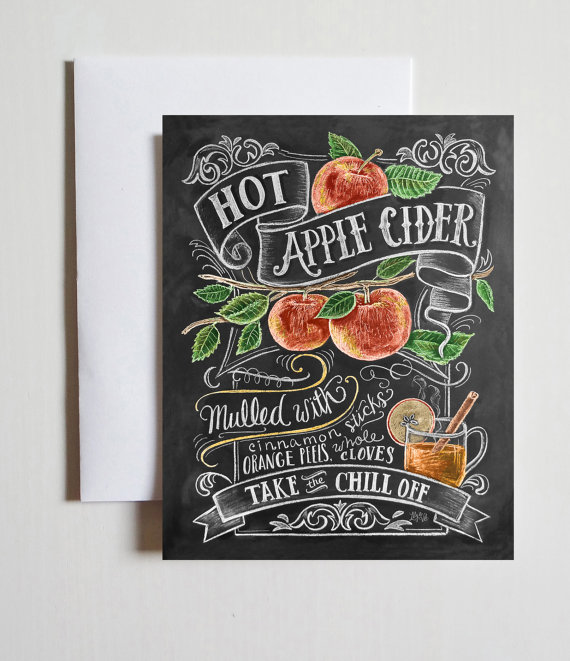 HOT
APPLE CIDER
Mulled with
cinnamon sticks
ORANGE PEELS, whole
CLOVES
TAKE the CHILL OFF